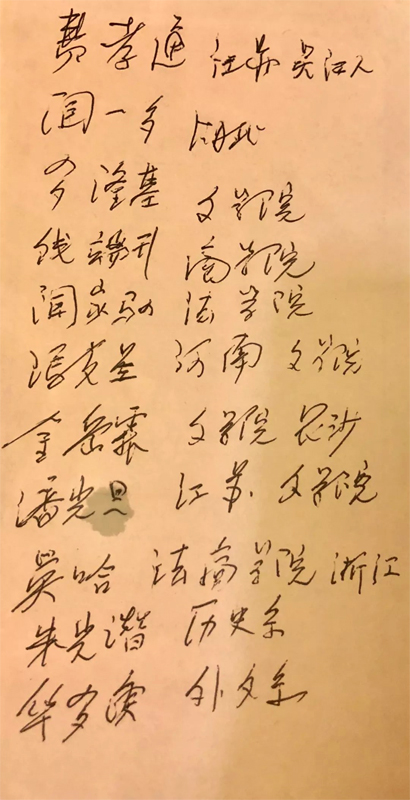 费孝通 江苏吴江人
闻一多 湖北
罗隆基 文学院
钱端升 商学院
闻家驷 法学院
冯克 河南 文学院
金岳霖 文学院 长沙
潘光旦 江苏 文学院
吴晗 法商学院 浙江
朱光潜 历史系
华罗庚 外文系